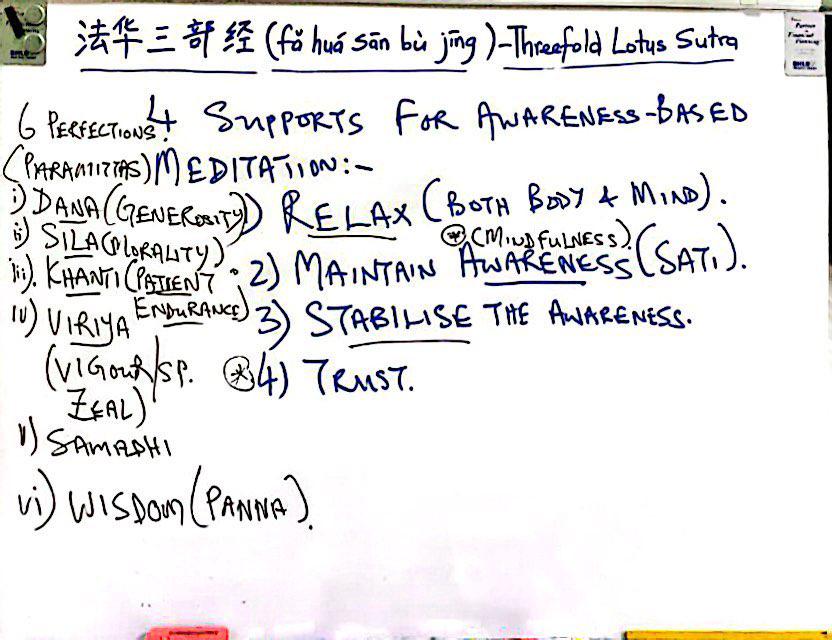 法华三部经 (fǎ huá sān bù jīng) - Threefold Lotus Sutra
4 SUPPORTS FOR AWARENESS-BASED
MEDITATION:-
1) RELAX (BOTH BODY & MIND).
* (MINDFULNESS).
2) MAINTAIN AWARENESS (SATI).
3) STABILISE THE AWARENESS.
* 4) TRUST.
6 PERFECTIONS:
(PARAMITTAS)
i) DANA (GENEROSITY)
ii) SILA (MORALITY)
iii). KHANTI (PATIENT
ENDURANCE)
iv) VIRIYA
(VIGOUR/SP.
ZEAL)
v) SAMADHI
vi) WISDOM (PANNA).